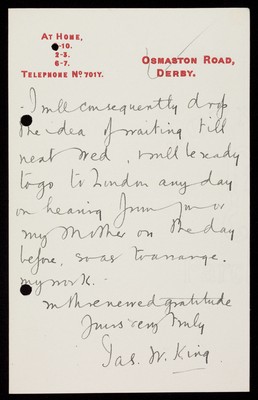 AT HOME,
-10.
2-3.
6-7.
TELEPHONE Nº 701Y.
OSMASTON ROAD,
DERBY.
- I will consequently drop
the idea of waiting till
next Wed, & will be ready
to go to London any day
on hearing from you or
my Mother on the day
before, so as to arrange
my work. -
With renewed gratitude
Yours very truly
Jas. W. King